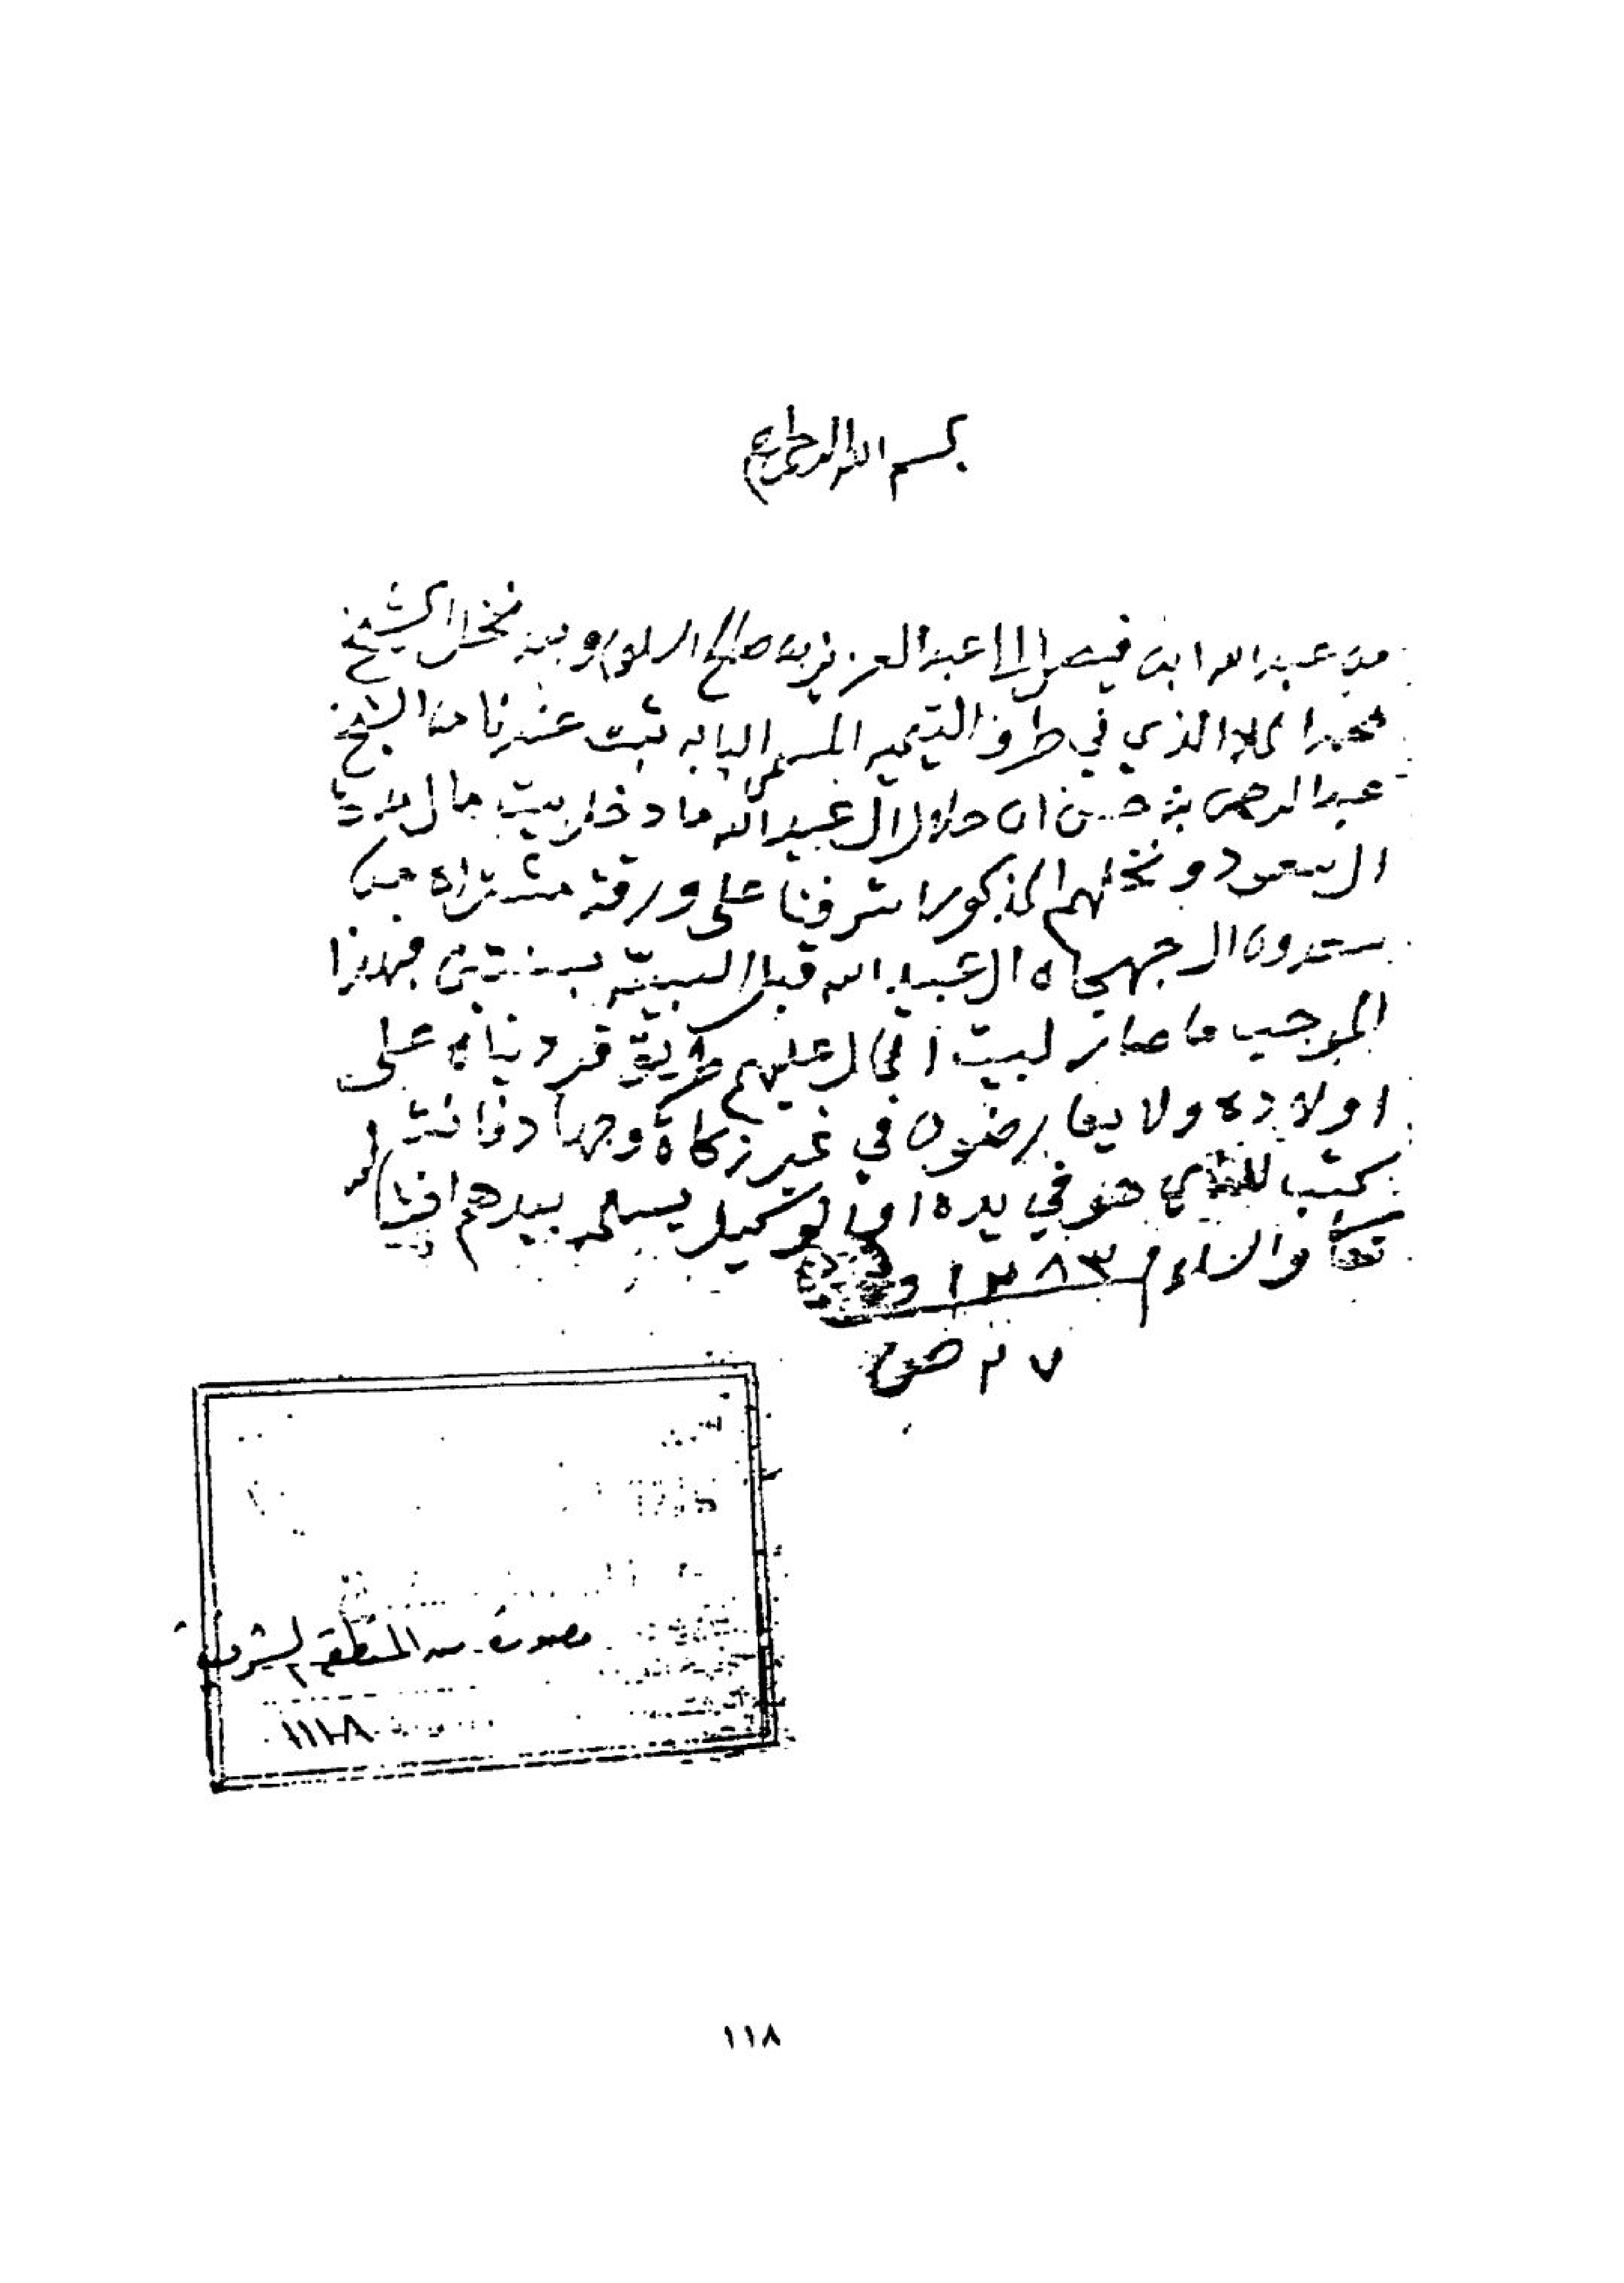 بسم الله الرحمن
من عبدالله ابن فيصل الى عبدالعزيز بن صالح السلام وبعد نخل الشيخ
محمد الملا الذي في طرف التيميه المسمى ثبت عندنا من الشيخ
عبدالرحمن بن حسن ان حلال ال عبيدالله ما دخل بيت مال
ال سعود ونخلهم المذكور اشرفنا على ورقة مشتراه من
سعدون ال عبيدالله قبل بسنتين فبهذا
الموجب ما صار لبيت المال عليهم طريق فردیناه على
اولاده ولا يعارضون في غير زكاة وجهاد فانت
يكتب للذي هو في يده يسلمه بيدهم انشا الله
تعالى والسلام ١٢٨٣
٢٧
مصورة من المنطقة الشرقية
١١٨